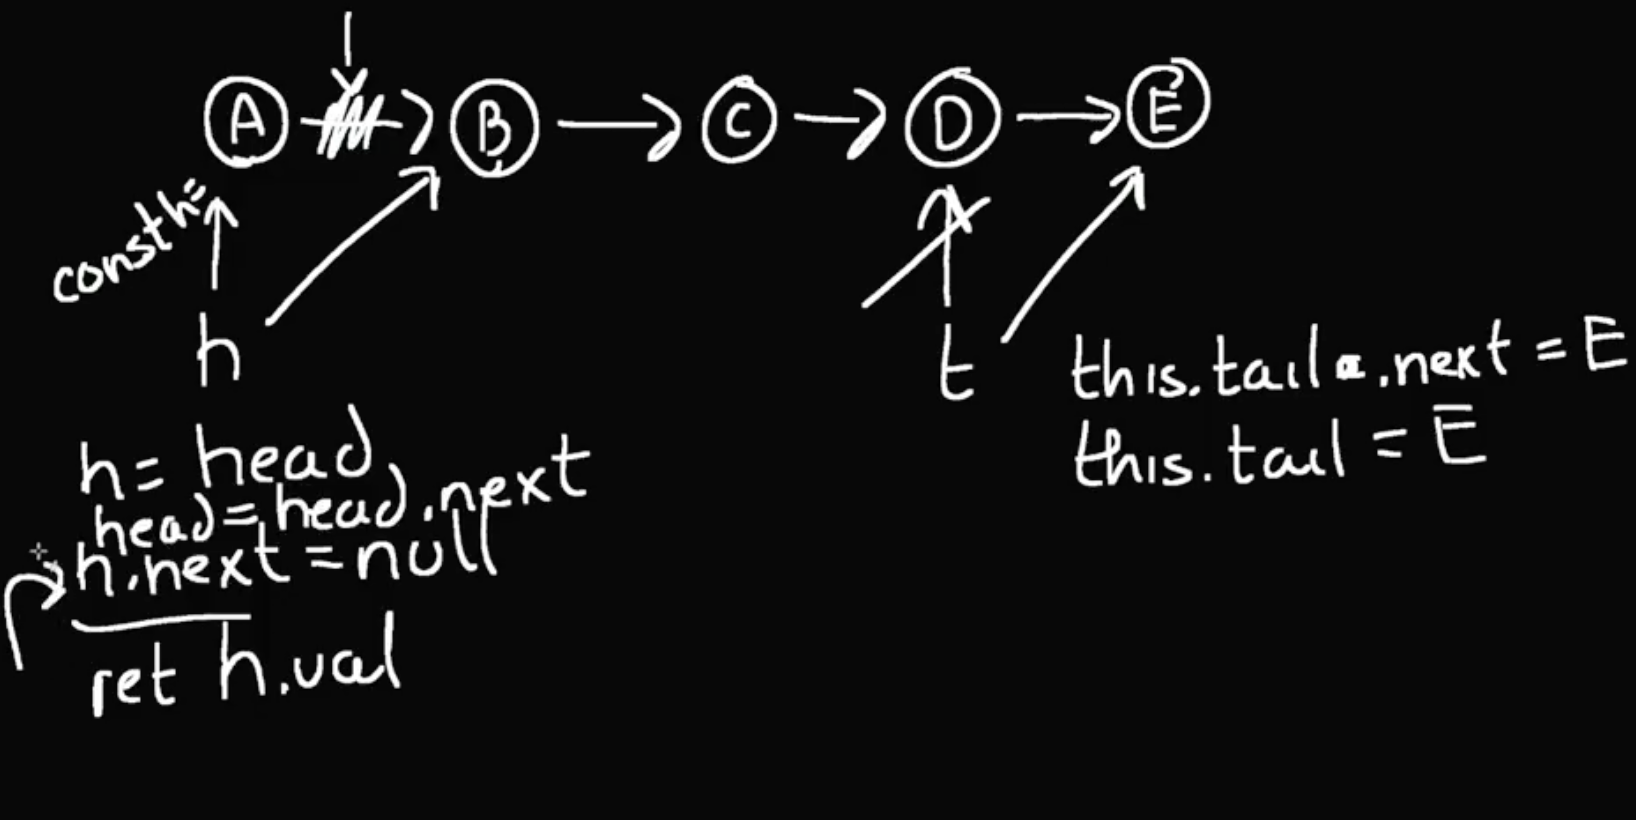 A B C D E
const h =
h
t
this.tail.next = E
this.tail = E
h = head
head = head.next
h.next = null
ret h.val